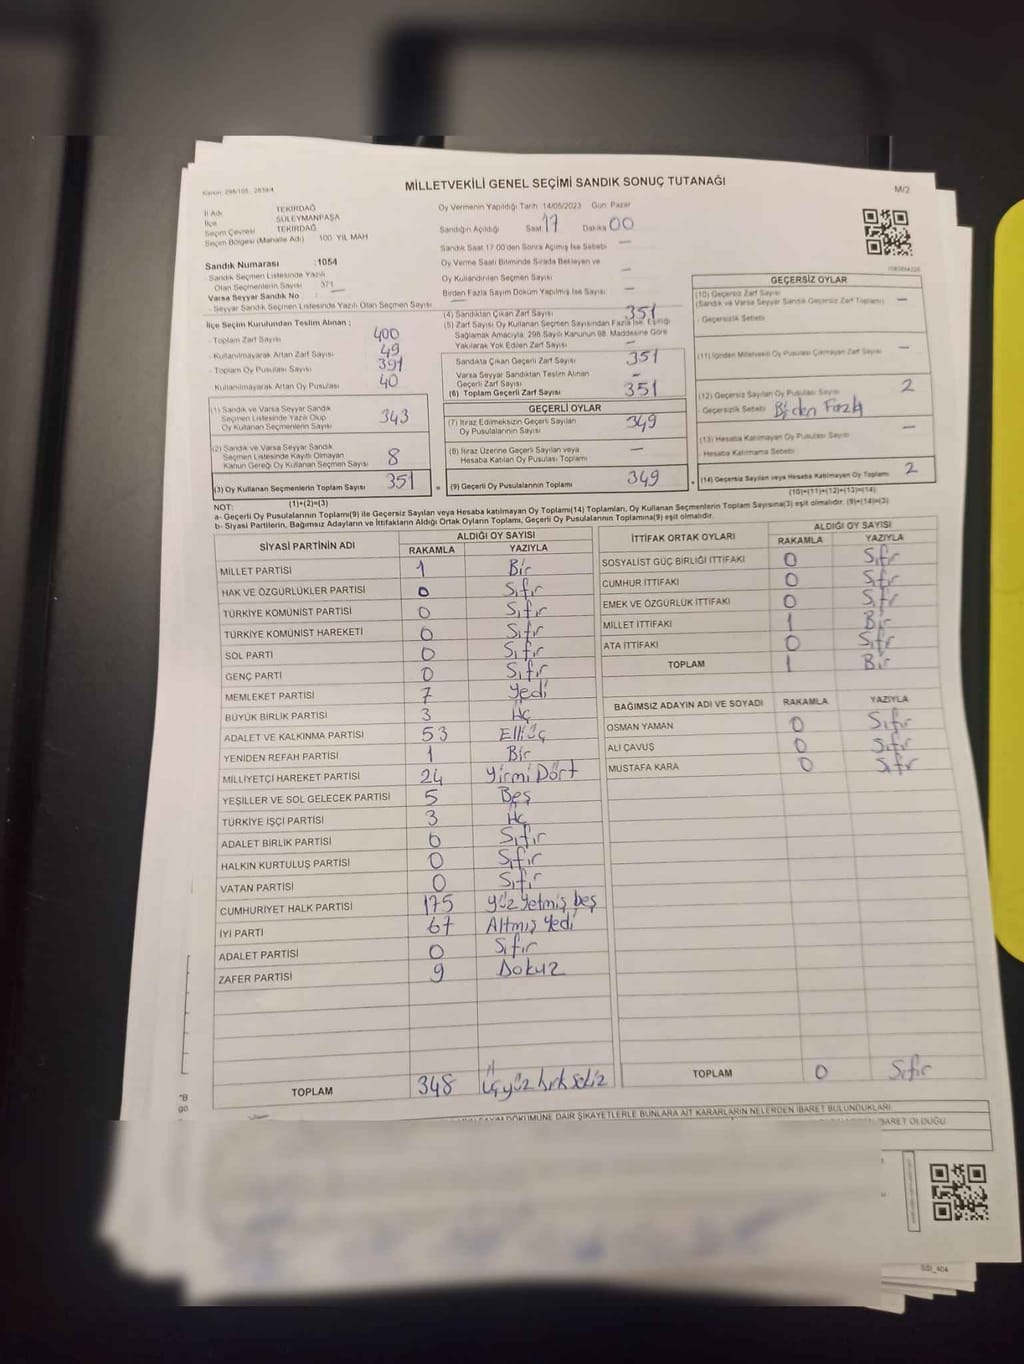 MİLLETVEKİLİ GENEL SEÇİMİ SANDIK SONUÇ TUTANAĞI
M/2
İl Adı TEKİRDAĞ
İlçe SÜLEYMANPAŞA
Seçim Çevresi TEKİRDAĞ
Seçim Bölgesi (Mahalle Adı) 100. YIL MAH
Sandık Numarası :1054
Sandık Seçmen Listesinde Yazılı
Olan Seçmenlerin Sayısı 371
Varsa Seyyar Sandık No —
- Seyyar Sandık Seçmen Listesinde Yazılı Olan Seçmen Sayısı —
Oy Vermenin Yapıldığı Tarih 14/05/2023 Gün Pazar
Sandığın Açıldığı Saat 17 Dakika 00
Sandık Saat 17.00'den Sonra Açılmış İse Sebebi —
Oy Verme Saati Bitiminde Sırada Bekleyen ve
Oy Kullandırılan Seçmen Sayısı —
Birden Fazla Sayım Döküm Yapılmış İse Sayısı —
İlçe Seçim Kurulundan Teslim Alınan ;
- Toplam Zarf Sayısı 400
- Kullanılmayarak Artan Zarf Sayısı 49
- Toplam Oy Pusulası Sayısı 391
Kullanılmayarak Artan Oy Pusulası 40
(1) Sandık ve Varsa Seyyar Sandık
Seçmen Listesinde Yazılı Olup
Oy Kullanan Seçmenlerin Sayısı 343
(2) Sandık ve Varsa Seyyar Sandık
Seçmen Listesinde Kayıtlı Olmayan
Kanun Gereği Oy Kullanan Seçmen Sayısı 8
(3) Oy Kullanan Seçmenlerin Toplam Sayısı 351
(1)+(2)=(3)
(4) Sandıktan Çıkan Zarf Sayısı 351
(5) Zarf Sayısı Oy Kullanan Seçmen Sayısından Fazla İse, Eşitliği
Sağlamak Amacıyla, 298 Sayılı Kanunun 98. Maddesine Göre
Yakılarak Yok Edilen Zarf Sayısı —
Sandıkta Çıkan Geçerli Zarf Sayısı 351
Varsa Seyyar Sandıktan Teslim Alınan
Geçerli Zarf Sayısı —
(6) Toplam Geçerli Zarf Sayısı 351
GEÇERLİ OYLAR
(7) İtiraz Edilmeksizin Geçerli Sayılan
Oy Pusulalarının Sayısı 349
(8) İtiraz Üzerine Geçerli Sayılan veya
Hesaba Katılan Oy Pusulası Toplamı —
= (9) Geçerli Oy Pusulalarının Toplamı 349
GEÇERSİZ OYLAR
(10) Geçersiz Zarf Sayısı
(Sandık ve Varsa Seyyar Sandık Geçersiz Zarf Toplamı) —
- Geçersizlik Sebebi
(11) İçinden Milletvekili Oy Pusulası Çıkmayan Zarf Sayısı —
(12) Geçersiz Sayılan Oy Pusulası Sayısı 2
- Geçersizlik Sebebi Biden Fazla
(13) Hesaba Katılmayan Oy Pusulası Sayısı —
- Hesaba Katılmama Sebebi
+ (14) Geçersiz Sayılan veya Hesaba Katılmayan Oy Toplamı 2
(10)+(11)+(12)+(13)=(14)
NOT:
a- Geçerli Oy Pusulalarının Toplamı(9) ile Geçersiz Sayılan veya Hesaba Katılmayan Oy Toplamı(14) Toplamları, Oy Kullanan Seçmenlerin Toplam Sayısına(3) eşit olmalıdır. (9)+(14)=(3)
b- Siyasi Partilerin, Bağımsız Adayların ve İttifakların Aldığı Ortak Oyların Toplamı, Geçerli Oy Pusulalarının Toplamına(9) eşit olmalıdır.
SİYASİ PARTİNİN ADI ALDIĞI OY SAYISI
RAKAMLA YAZIYLA
MİLLET PARTİSİ 1 Bir
HAK VE ÖZGÜRLÜKLER PARTİSİ 0 Sıfır
TÜRKİYE KOMÜNİST PARTİSİ 0 Sıfır
TÜRKİYE KOMÜNİST HAREKETİ 0 Sıfır
SOL PARTİ 0 Sıfır
GENÇ PARTİ 0 Sıfır
MEMLEKET PARTİSİ 7 Yedi
BÜYÜK BİRLİK PARTİSİ 3 Üç
ADALET VE KALKINMA PARTİSİ 53 Elliüç
YENİDEN REFAH PARTİSİ 1 Bir
MİLLİYETÇİ HAREKET PARTİSİ 24 Yirmi Dört
YEŞİLLER VE SOL GELECEK PARTİSİ 5 Beş
TÜRKİYE İŞÇİ PARTİSİ 3 Üç
ADALET BİRLİK PARTİSİ 0 Sıfır
HALKIN KURTULUŞ PARTİSİ 0 Sıfır
VATAN PARTİSİ 0 Sıfır
CUMHURİYET HALK PARTİSİ 175 Yüz Yetmiş beş
İYİ PARTİ 67 Altmış Yedi
ADALET PARTİSİ 0 Sıfır
ZAFER PARTİSİ 9 Dokuz
TOPLAM 348 Üçyüz kırk sekiz
İTTİFAK ORTAK OYLARI ALDIĞI OY SAYISI
RAKAMLA YAZIYLA
SOSYALİST GÜÇ BİRLİĞİ İTTİFAKI 0 Sıfır
CUMHUR İTTİFAKI 0 Sıfır
EMEK VE ÖZGÜRLÜK İTTİFAKI 0 Sıfır
MİLLET İTTİFAKI 1 Bir
ATA İTTİFAKI 0 Sıfır
TOPLAM 1 Bir
BAĞIMSIZ ADAYIN ADI VE SOYADI RAKAMLA YAZIYLA
OSMAN YAMAN 0 Sıfır
ALİ ÇAVUŞ 0 Sıfır
MUSTAFA KARA 0 Sıfır
TOPLAM 0 Sıfır
DÖKÜMÜNE DAİR ŞİKAYETLERLE BUNLARA AİT KARARLARIN NELERDEN İBARET BULUNDUKLARI
İBARET OLDUĞU